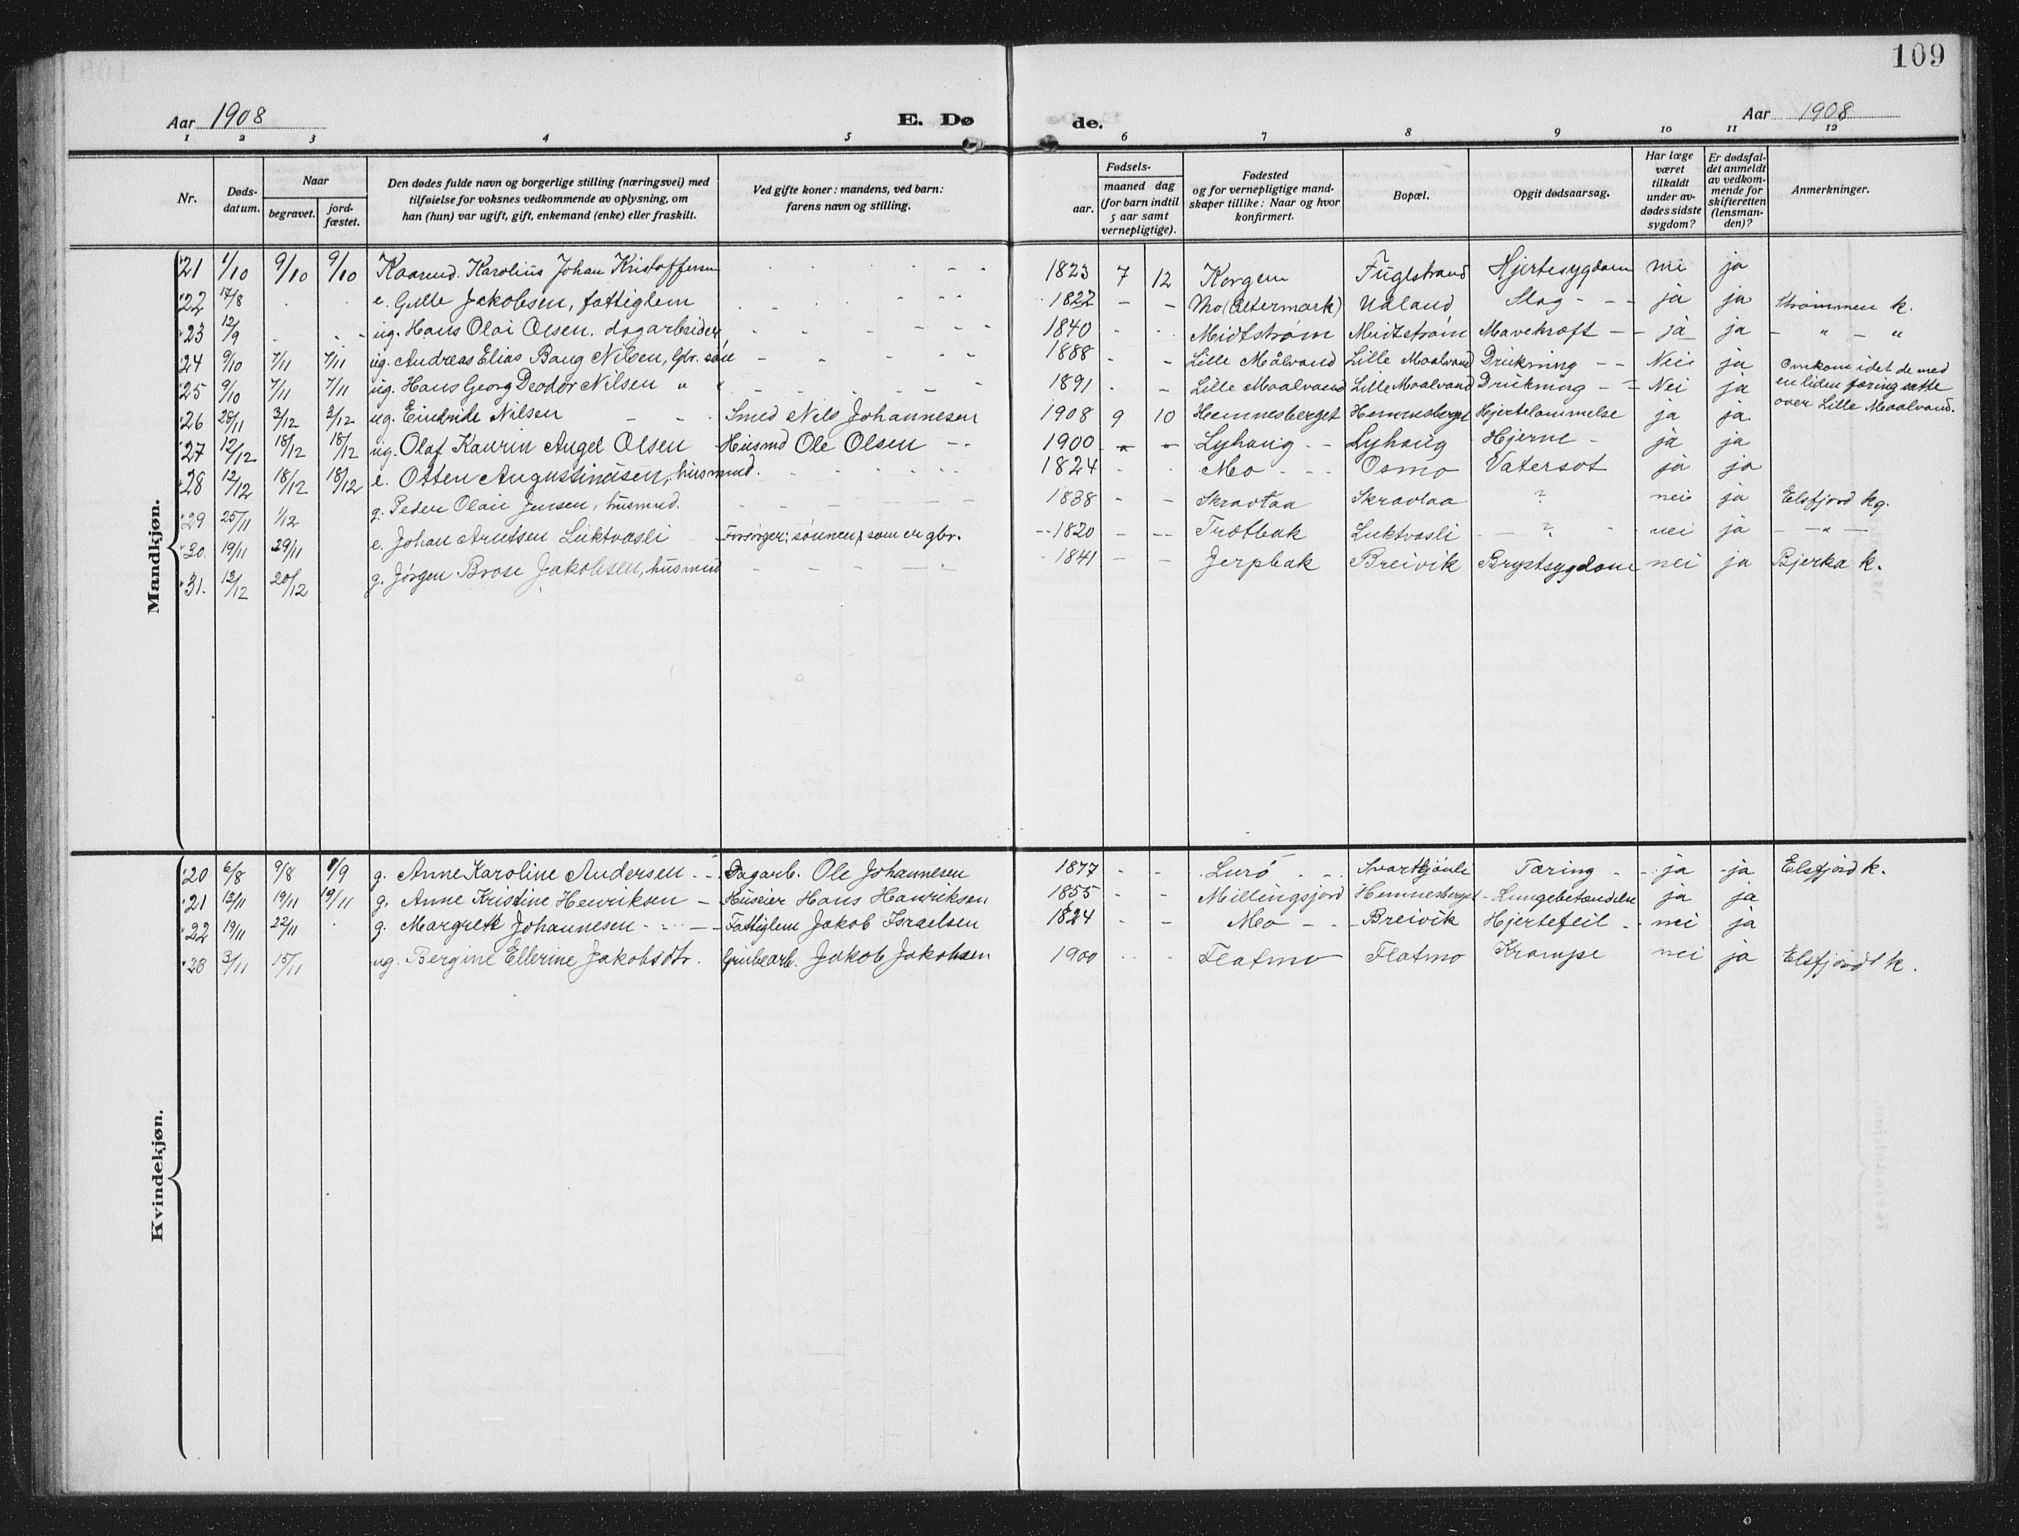 109
Aar 1908 E. Dø de. Aar 1908
1 2 3 4 5 6 7 8 9 10 11 12
Nr. Døds-datum. Naar begravet. jord-fæstet. Den dødes fulde navn og borgerlige stilling (næringsvei) med tilføielse for voksnes vedkommende av oplysning, om han (hun) var ugift, gift, enkemand (enke) eller fraskilt. Ved gifte koner: mandens, ved barn: farens navn og stilling. Fødsels- aar. maaned dag (for barn indtil 5 aar samt vernepligtige). Fødested og for vernepligtige mand-skaper tillike: Naar og hvor konfirmert. Bopæl. Opgit dødsaarsag. Har læge været tilkaldt under av-dødes sidste sygdom? Er dødsfal-det anmeldt av vedkom-mende for skifteretten (lensman-den)? Anmerkninger.
Mandkjøn.
21 1/10 9/10 9/10 Kaarmd. Karolius Johan Kristoffersen 1823 7 12 Korgen Fuglstrand Hjertesygdom nei ja
22 17/8 e. Jakobsen, fattiglem 1822 - - Mo (Altermark) Udland Slag - - ja ja Strømmen k.
23 12/9 ug. Hans Olai Olsen. dagarbeider 1840 Midtstrøm Midtstrøm Mavekræft - - ja ja - " - "
24 9/10 7/11 7/11 ug. Andreas Elias Bang Nilsen, Gbr. søn 1888 - - Lille Målvand Lille Maalvand Drukning - - Nei ja Omkom idet de med
25 9/10 7/11 7/11 ug. Hans Georg Deodor Nilsen " " 1891 - - Lille Maalvand Lille Maalvand Drukning - - Nei ja en liden færing satte
26 28/11 3/12 3/12 ug. Eindride Nilsen - - Smed Nils Johannesen 1908 9 10 Hemnesberget Hemnesberget Hjertelammelse ja ja over Lille Maalvand.
27 12/12 18/12 18/12 ug. Olaf Kaurin Angel Olsen Husmd Ole Olsen - - 1900 - - Lyhaug - - Lyhaug Hjerne - ja ja
28 12/12 18/12 18/12 e. Otten Augustinusen, husmmd. 1824 Mo - - - Osmo Vatersot ja ja
29 25/11 1/12 g. Peder Olai Jensen, husmd. 1838 - - Skravlaa Skravlaa ? nei ja Elsfjord kg.
30. 19/11 29/11 e. Johan Arntsen Luktvasli Forsørger: sønnen, som er gbr. 1820 - - Trætbak Luktvasli - ? - nei ja - " -
31. 12/12 20/12 g. Jørgen Brose Jakobsen, husmnd 1841 - - Jerpbak Breivik Brystsygdom nei ja Bjerka k.
Kvindekjøn.
20 6/8 9/8 8/9 g. Anne Karoline Andersen - - Dagarb. Ole Johannesen 1877 - - Lurø - - Svarttjønli Tæring - - ja ja Elsfjord k.
21 13/11 19/11 19/11 g. Anne Kristine Henriksen - Huseier Hans Henriksen 1855 - - Millingsjord Hemnesberget - Lungebetændelse ja ja
22 19/11 22/11 g. Margret Johannesen - - - Fattiglem Jakob Israelsen 1824 - - Mo - - Breivik Hjertefeil - nei ja
23 3/11 15/11 ug. Bergine Ellerine Jakobsdtr. Grubearb. Jakob Jakobsen 1900 - - Flatmo Flatmo Krampe nei ja Elsfjord k.